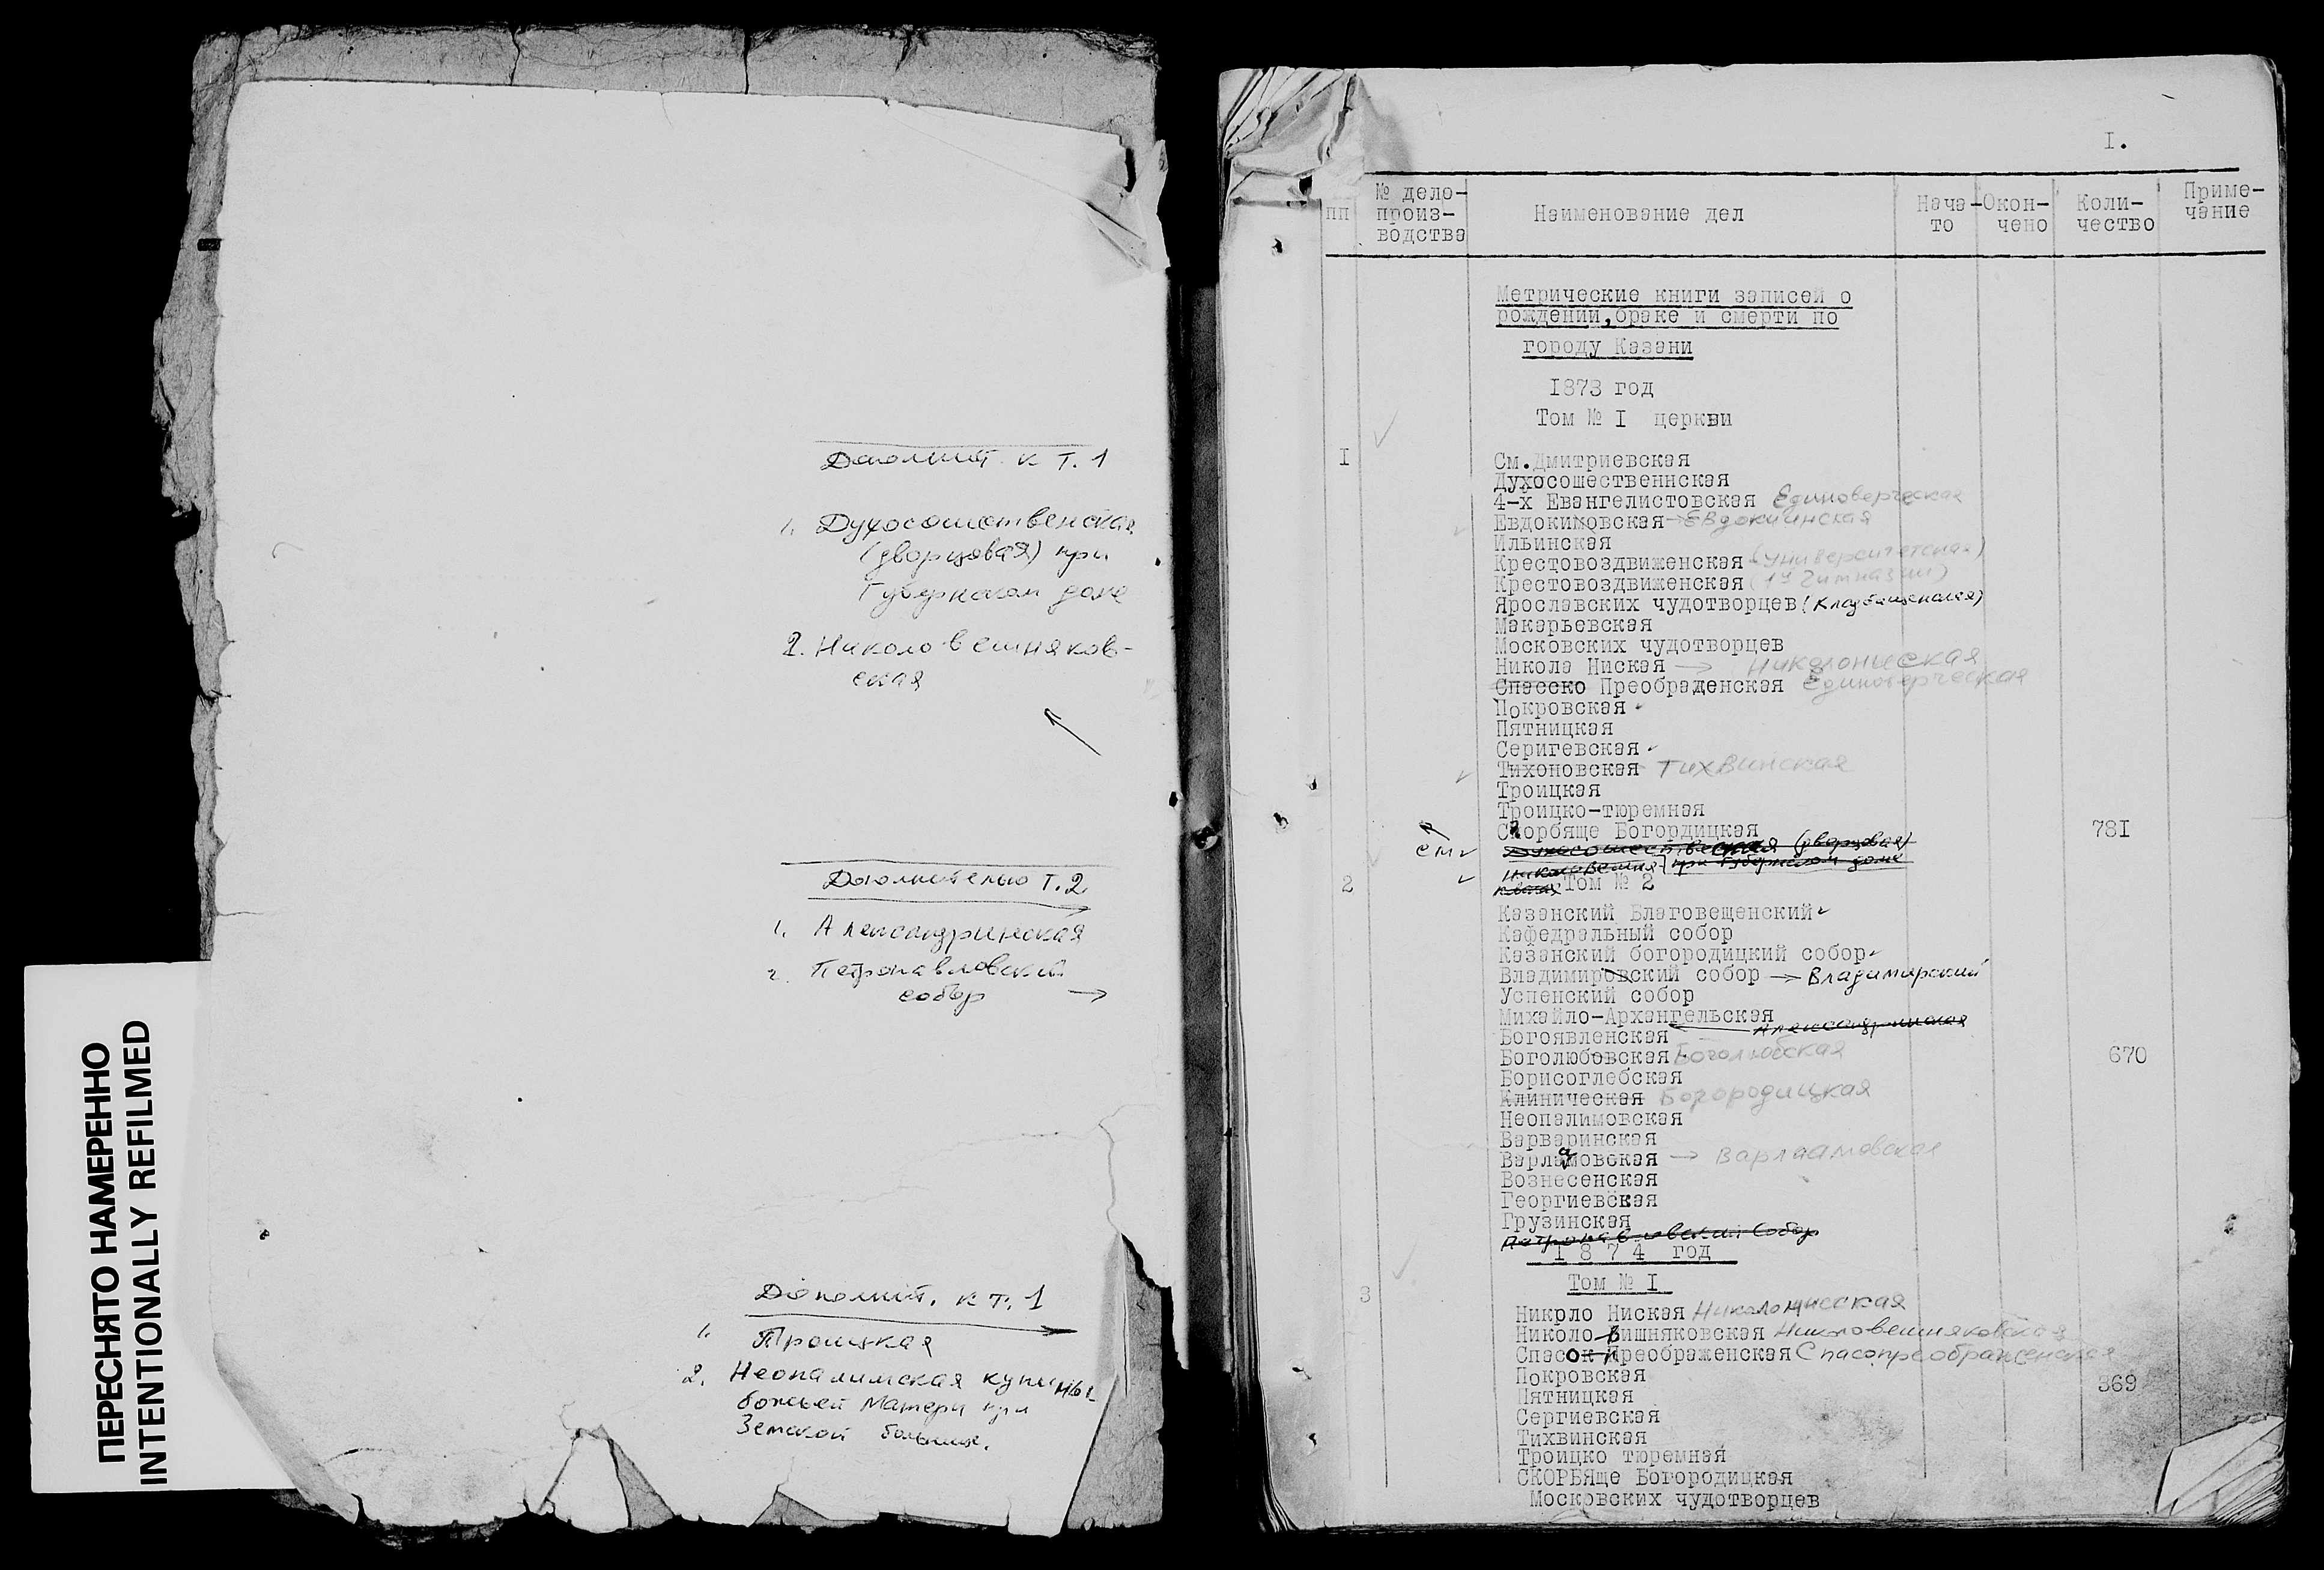 ПЕРЕСНЯТО НАМЕРЕННО
INTENTIONALLY REFILMED
Дополнит. к Т. 1
1. Духосошественская
(дворцовая) при
Губернском доме
2. Николовешняков-
ская
Дополнительно Т. 2
1. Александринская
2. Петропавловский
собор
Дополнит. к т. 1
1. Троицкая
2. Неопалимская купины
божьей Матери при
Земской больнице.
I.
пп
№ дело-
произ-
водства
Наименование дел
Нача-
то
Окон-
чено
Коли-
чество
Приме-
чание
Метрические книги записей о
рождении, браке и смерти по
городу Казани
1873 год
Том № I церкви
I См.Дмитриевская
Духосошественнская
4-х Евангелистовская Единоверческая
Евдокимовская → Евдокиинская
Ильинская
Крестовоздвиженская (университетская)
Крестовоздвиженская (1й гимназии)
Ярославских чудотворцев (кладбищенская)
Макарьевская
Московских чудотворцев
Никола Ниская → Николониская
Спасско Преобраденская Единоверческая
Покровская
Пятницкая
Серигевская
Тихоновская Тихвинская
Троицкая
Троицко-тюремная
Скорбяще Богордицкая 781
см Духосошественская (дворцовая)
Николовешня- при губернском доме
2 Том № 2
Казанский Благовещенский
Кафедральный собор
Казанский богородицкий собор
Владимировский собор → Владимирский
Успенский собор
Михайло-Архангельская
Александринская
Богоявленская
Боголюбовская Боголюбская 670
Борисоглебская
Клиническая Богородицкая
Неопалимовская
Варваринская
Варламовская → Варлаамовская
Вознесенская
Георгиевская
Грузинская
Петропавловский Собор
1 8 7 4 год
Том № I
3 Никрло Ниская Николониская
Николо-Вишняковская Николовешняковская
Спасок-Преображенская Спасопреображенская
Покровская 369
Пятницкая
Сергиевская
Тихвинская
Троицко тюремная
СКОРБЯще Богородицкая
Московских чудотворцев